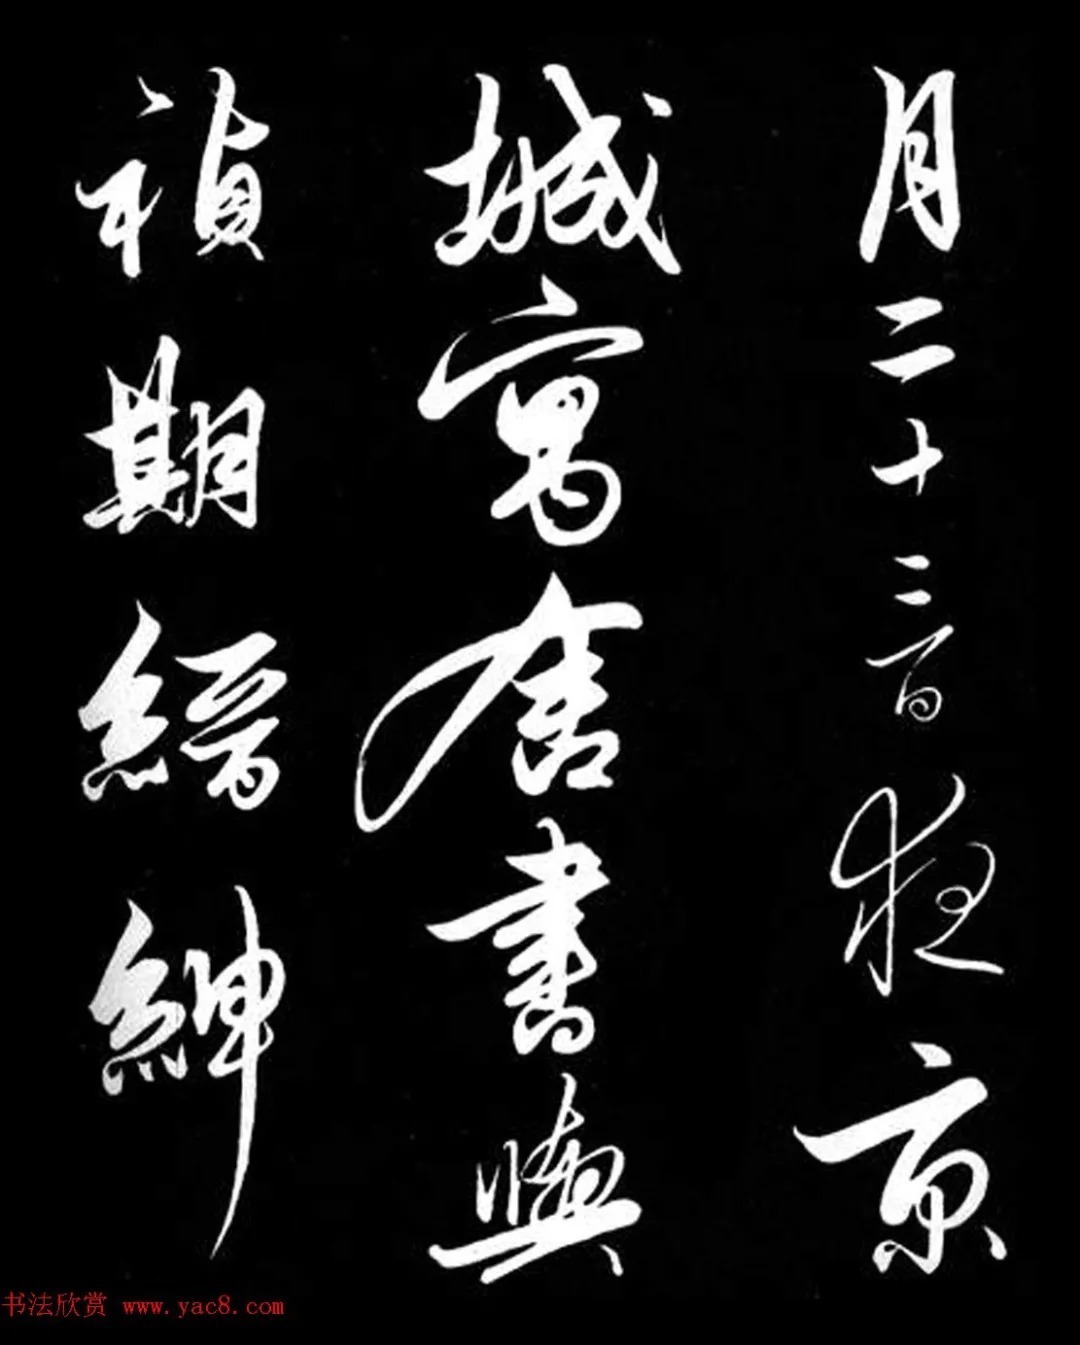 月二十三日夜京
城寓舍書與
禎期縉紳
书法欣赏 www.yac8.com